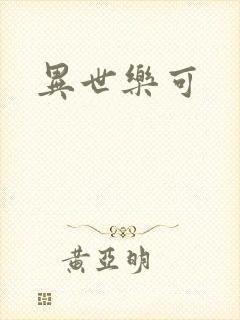 異世樂可
黃亞明